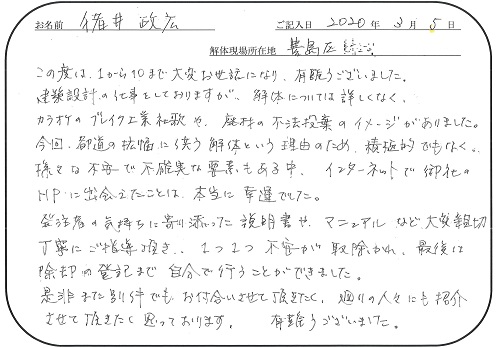 お名前 猪井 政広 ご記入日 2020 年 3 月 5 日
解体現場所在地 豊島区
この度は、1から10まで大変お世話になり、有難うございました。
建築設計の仕事をしておりますが、解体については詳しくなく、
カラオケのブレイク工業社歌や、廃材の不法投棄のイメージがありました。
今回、都道の拡幅に伴う解体という理由のため、積極的でもなく、
様々な不安で不確実な要素もある中、インターネットで御社の
HPに出会えたことは、本当に幸運でした。
発注者の気持ちに寄り添った説明書や、マニュアルなど大変親切
丁寧にご指導頂き、1つ1つ不安が取除かれ、最後は
除却の登記まで自分で行うことができました。
是非また別件でもお付合いさせて頂きたく、廻りの人々にも紹介
させて頂きたく思っております。 有難うございました。